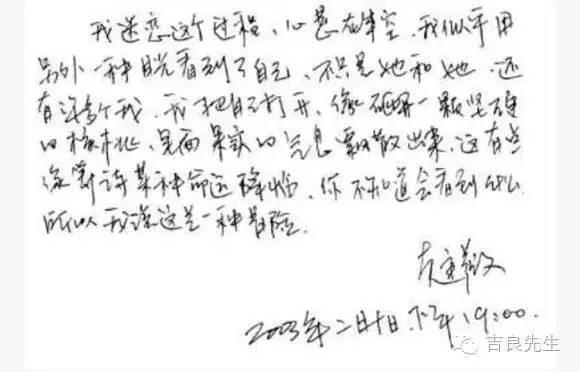 我迷恋这个过程，心悬在半空，我似乎用
另外一种目光看到了自己，不只是她和她，还
有许多个我，我把自己打开，像砸开一颗坚硬
的核桃，里面果实的气息飘散出来，这有点
像等待某种命运降临，你不知道会看到什么
所以我说这是一种冒险.
2003年二月十日.下午19:00.
吉良先生